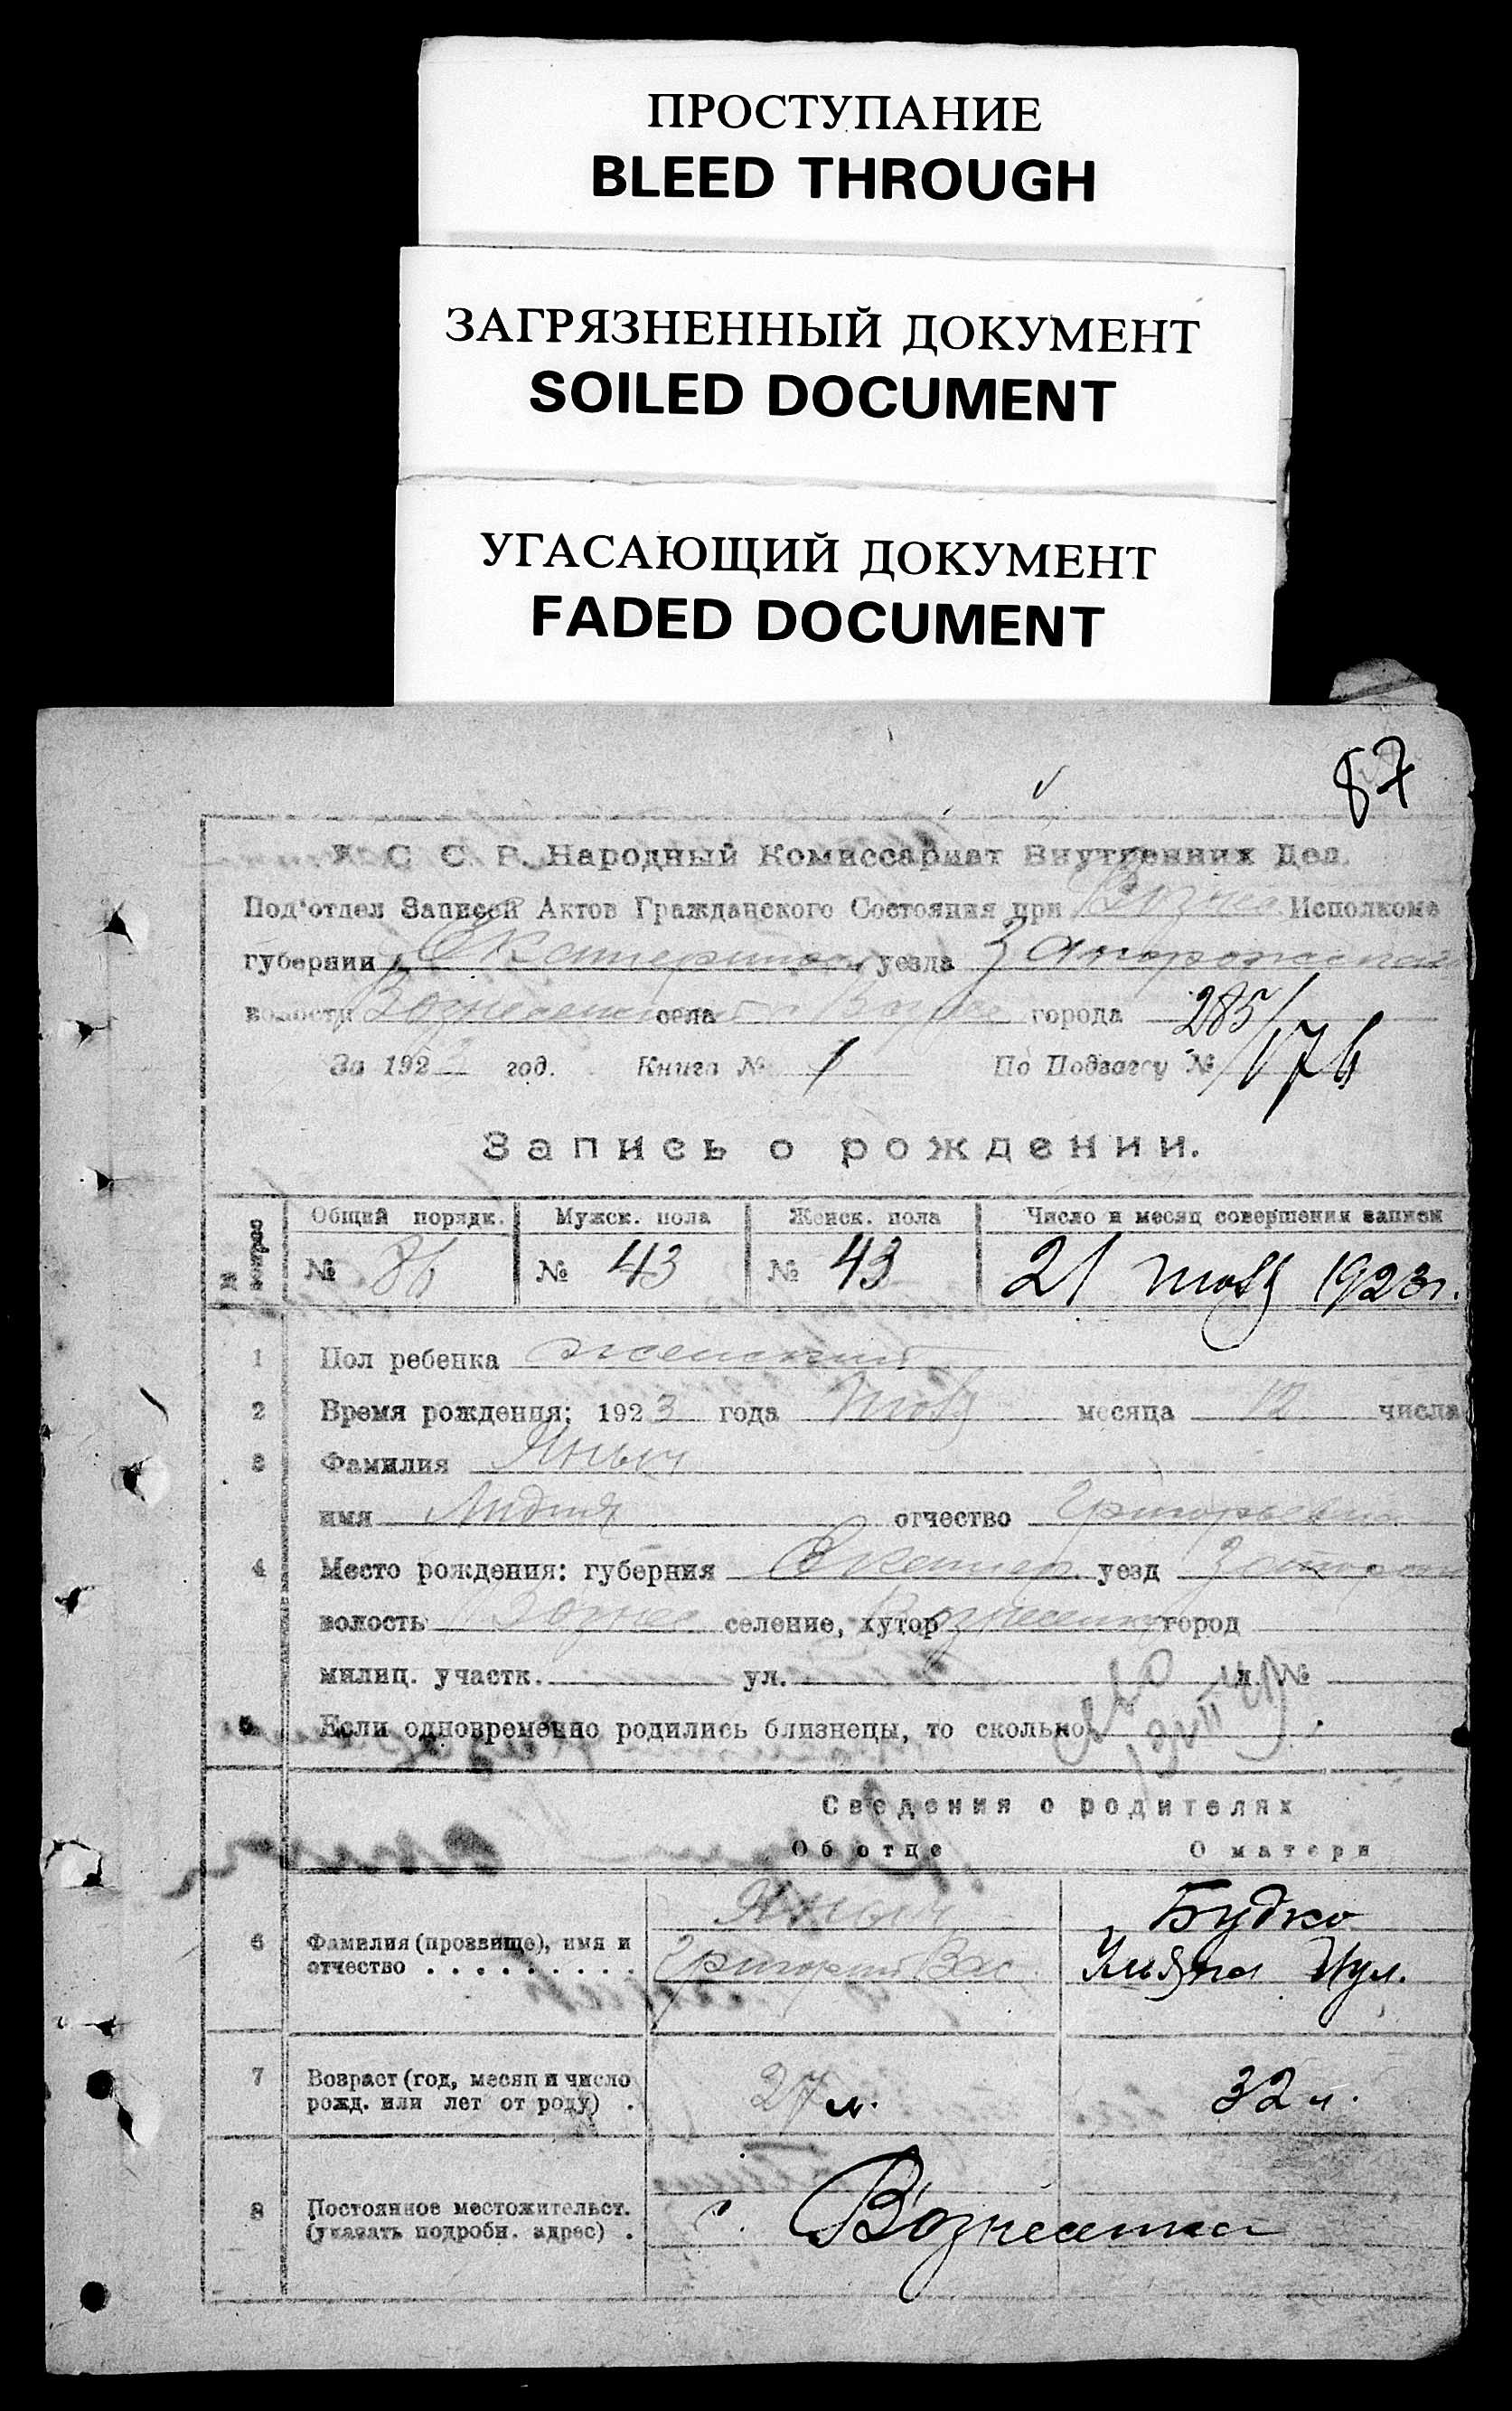 ПРОСТУПАНИЕ
BLEED THROUGH
ЗАГРЯЗНЕННЫЙ ДОКУМЕНТ
SOILED DOCUMENT
УГАСАЮЩИЙ ДОКУМЕНТ
FADED DOCUMENT
87
С С Р. Народный Комиссариат Внутренних Дел.
Под'отдел Записей Актов Гражданского Состояния при Вознес. Исполкоме
губернии Екатеринос. уезда Запорожского
волости Вознесенской села Вознес города 285/
За 1923 год. Книга № 1 По Подзагсу № 176
Запись о рождении.
Общий порядк. Мужск. пола Женск. пола Число и месяц совершения записи
№ 86 № 43 № 43 21 1923г.
1 Пол ребенка женский
2 Время рождения: 1923 года месяца 12 числа
3 Фамилия Яныч
имя Лидия отчество Григорьевна
4 Место рождения: губерния Екатер. уезд Запорож
волость Вознес селение, хутор Вознесенка город
милиц. участк. ул. д. №
5 Если одновременно родились близнецы, то сколько
Сведения о родителях
Об отце О матери
6 Фамилия (прозвище), имя и отчество Яныч Григорий Вас. Будко Ульяна
7 Возраст (год, месяц и число рожд. или лет от роду) 27 л. 32 л.
8 Постоянное местожительст. (указать подробн. адрес) с. Вознесенка